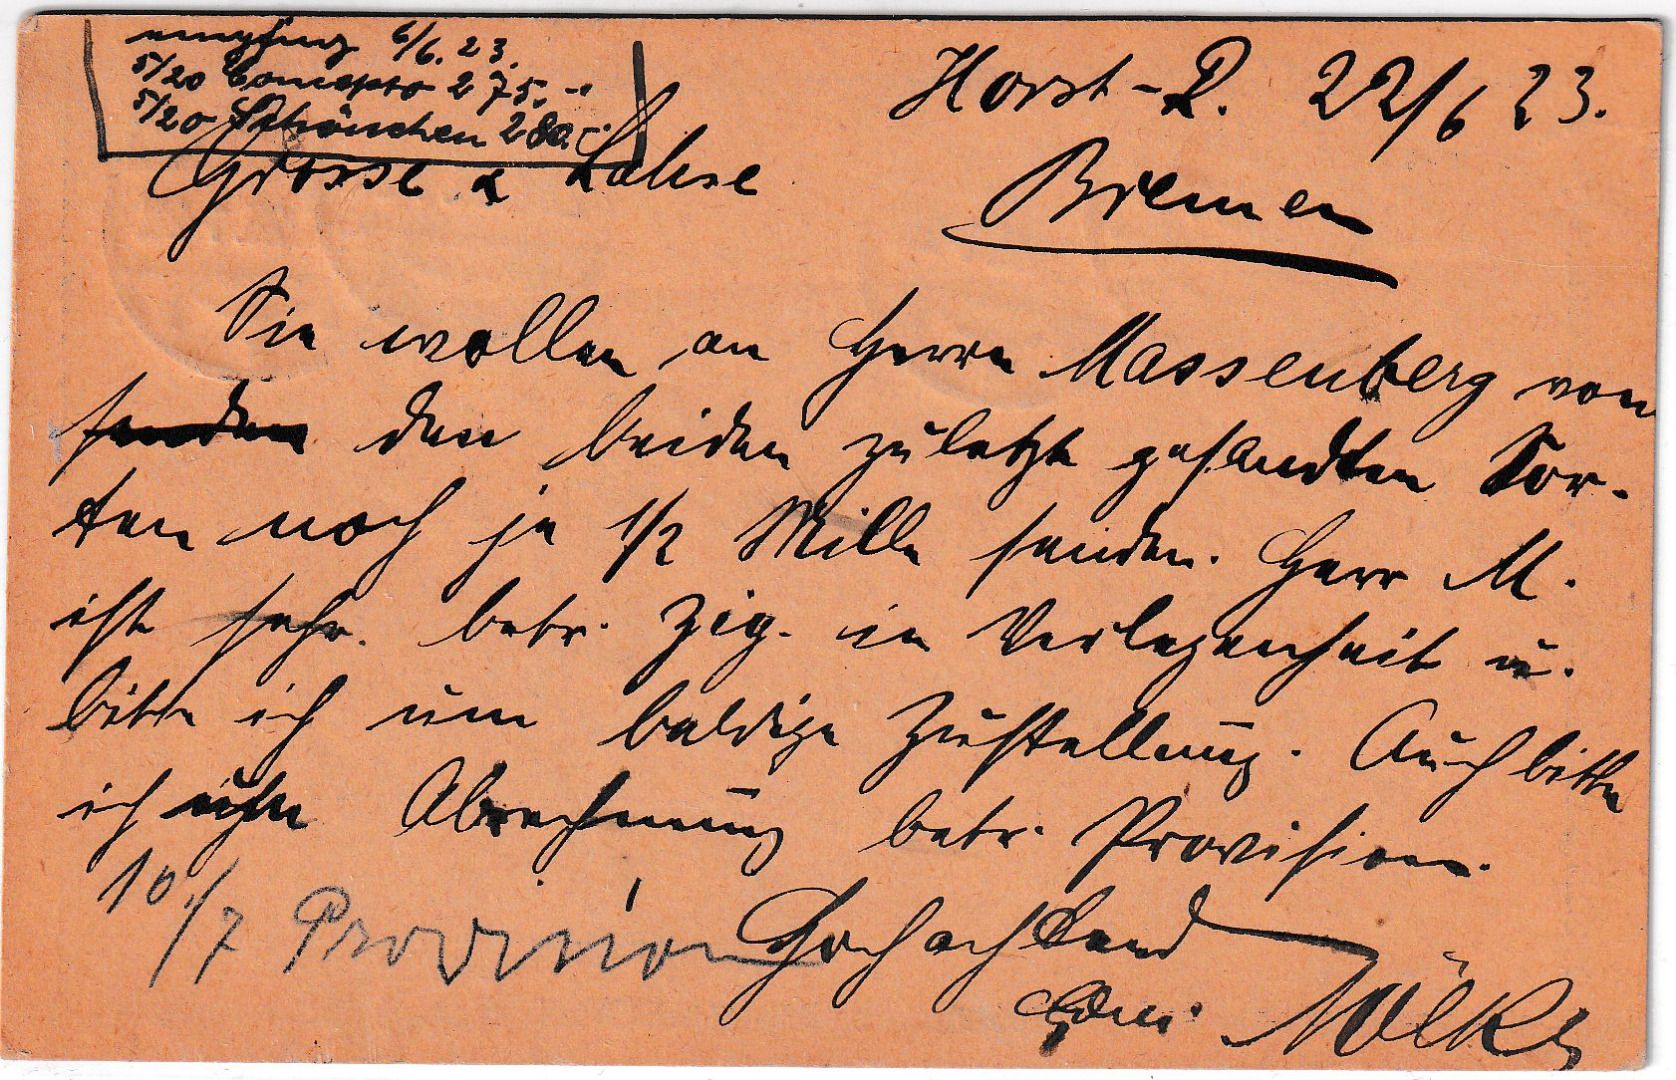 empfing 6/6.23.
5/20 Concepto 275.-
5/20 Schönchen 280.-
Horst-R. 22/6 23.
Grosse & Lohse
Bremen
Sie wollen an Herrn Massenberg von
senden den beiden zuletzt gesandten Sor-
ten noch je 1/2 Mille senden. Herr M.
ist sehr. betr. Zig. in Verlegenheit u.
bitte ich um baldige Zustellung. Auch bitte
ich um Abrechnung betr. Provision.
10./7 Provision
Hochachtend
Nölke